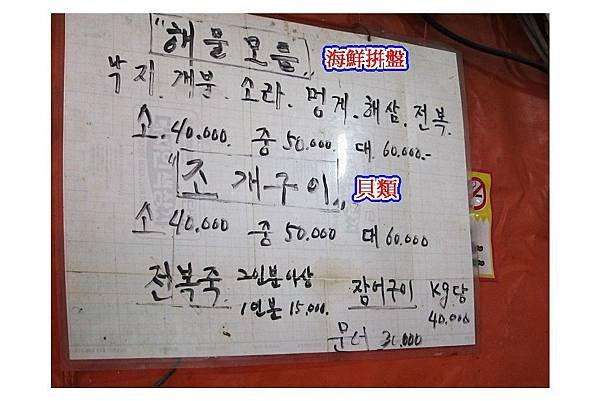 "해물모듬" 海鮮拼盤
낙지. 개불. 소라. 멍게. 해삼. 전복.
소. 40.000. 중 50.000. 대. 60.000.-
"조개구이" 貝類
소 40.000 중 50.000 대 60.000
전복죽 2인분이상
1인분 15.000.
장어구이 Kg당
40.000
문어 30.000